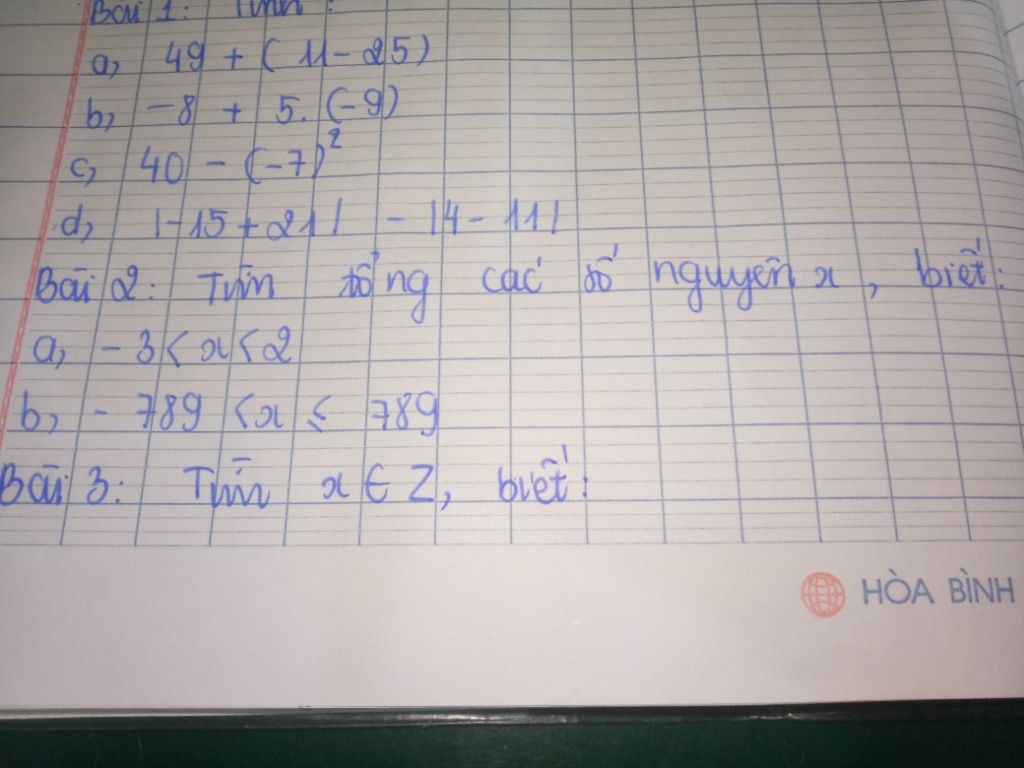 Bài 1: Tính:
a, 49 + (11 - 25)
b, -8 + 5. (-9)
c, 40 - (-7)²
d, |-15 + 21| - |4 - 11|
Bài 2: Tìm tổng các số nguyên x, biết:
a, -3 < x < 2
b, -789 < x ≤ 789
Bài 3: Tìm x ∈ Z, biết:
HÒA BÌNH